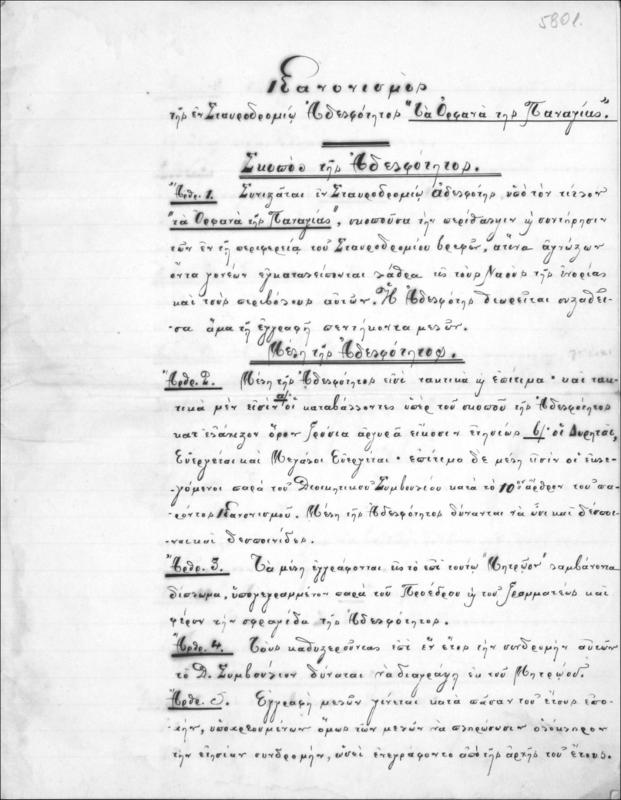 5801.
Κανονισμὸς
τῆς ἐν Σταυροδρομίῳ Ἀδελφότητος "Τὰ Ὀρφανὰ της Παναγίας."
Σκοπὸς τῆς Ἀδελφότητος.
Ἄρθρ. 1. Συνιστᾶται ἐν Σταυροδρομίῳ ἀδελφότης ὑπὸ τὸν τίτλον
"τὰ Ὀρφανὰ τῆς Παναγίας", σκοποῦσα τὴν περίθαλψιν ἢ συντήρησιν
τῶν ἐν τῇ περιφερείᾳ τοῦ Σταυροδρομίου βρεφῶν, ἅτινα ἀγνώστων
ὄντα γονέων ἐγκαταλείπονται λάθρα εἰς τοὺς Ναοὺς τῆς ἐνορίας
καὶ τοὺς περιβόλους αὐτῶν. Ἡ Ἀδελφότης θεωρεῖται συσταθεῖ-
σα ἅμα τῇ ἐγγραφῇ πεντήκοντα μελῶν.
Μέλη τῆς Ἀδελφότητος.
Ἄρθρ. 2. Μέλη τῆς Ἀδελφότητος εἰσὶ τακτικὰ ἢ ἐπίτιμα· καὶ τακ-
τικὰ μὲν εἰσὶν α) οἱ καταβάλλοντες ὑπὲρ τοῦ σκοποῦ τῆς Ἀδελφότητος
κατ' ἐλάχιστον ὅρον γρόσια ἀργυρᾶ εἴκοσιν ἐτησίως β) οἱ Δωρηταί,
Εὐεργέται καὶ Μεγάλοι Εὐεργέται· ἐπίτιμα δὲ μέλη εἰσὶν οἱ ἐκλε-
γόμενοι παρὰ τοῦ Διοικητικοῦ Συμβουλίου κατὰ τὸ 10ον ἄρθρον τοῦ πα-
ρόντος Κανονισμοῦ. Μέλη τῆς Ἀδελφότητος δύνανται νὰ ὦσι καὶ δέσποι-
ναι καὶ δεσποινίδες.
Ἄρθρ. 3. Τὰ μέλη ἐγγράφονται εἰς τὸ ἐπὶ τούτῳ "Μητρῷον" λαμβάνοντα
δίπλωμα, ὑπογεγραμμένον παρὰ τοῦ Προέδρου ἢ τοῦ Γραμματέως καὶ
φέρον τὴν σφραγίδα τῆς Ἀδελφότητος.
Ἄρθρ. 4. Τοὺς καθυστεροῦντας ἐπὶ ἓν ἔτος τὴν συνδρομὴν αὐτῶν
τὸ Δ. Συμβούλιον δύναται νὰ διαγράφῃ ἐκ τοῦ Μητρῴου.
Ἄρθρ. 5. Ἐγγραφὴ μελῶν γίνεται κατὰ πᾶσαν τοῦ ἔτους ἐπο-
χήν, ὑποχρεουμένων ὅμως τῶν μελῶν νὰ πληρώσωσιν ὁλόκληρον
τὴν ἐτησίαν συνδρομήν, ὡσεὶ ἐνεγράφοντο ἀπὸ τῆς ἀρχῆς τοῦ ἔτους.